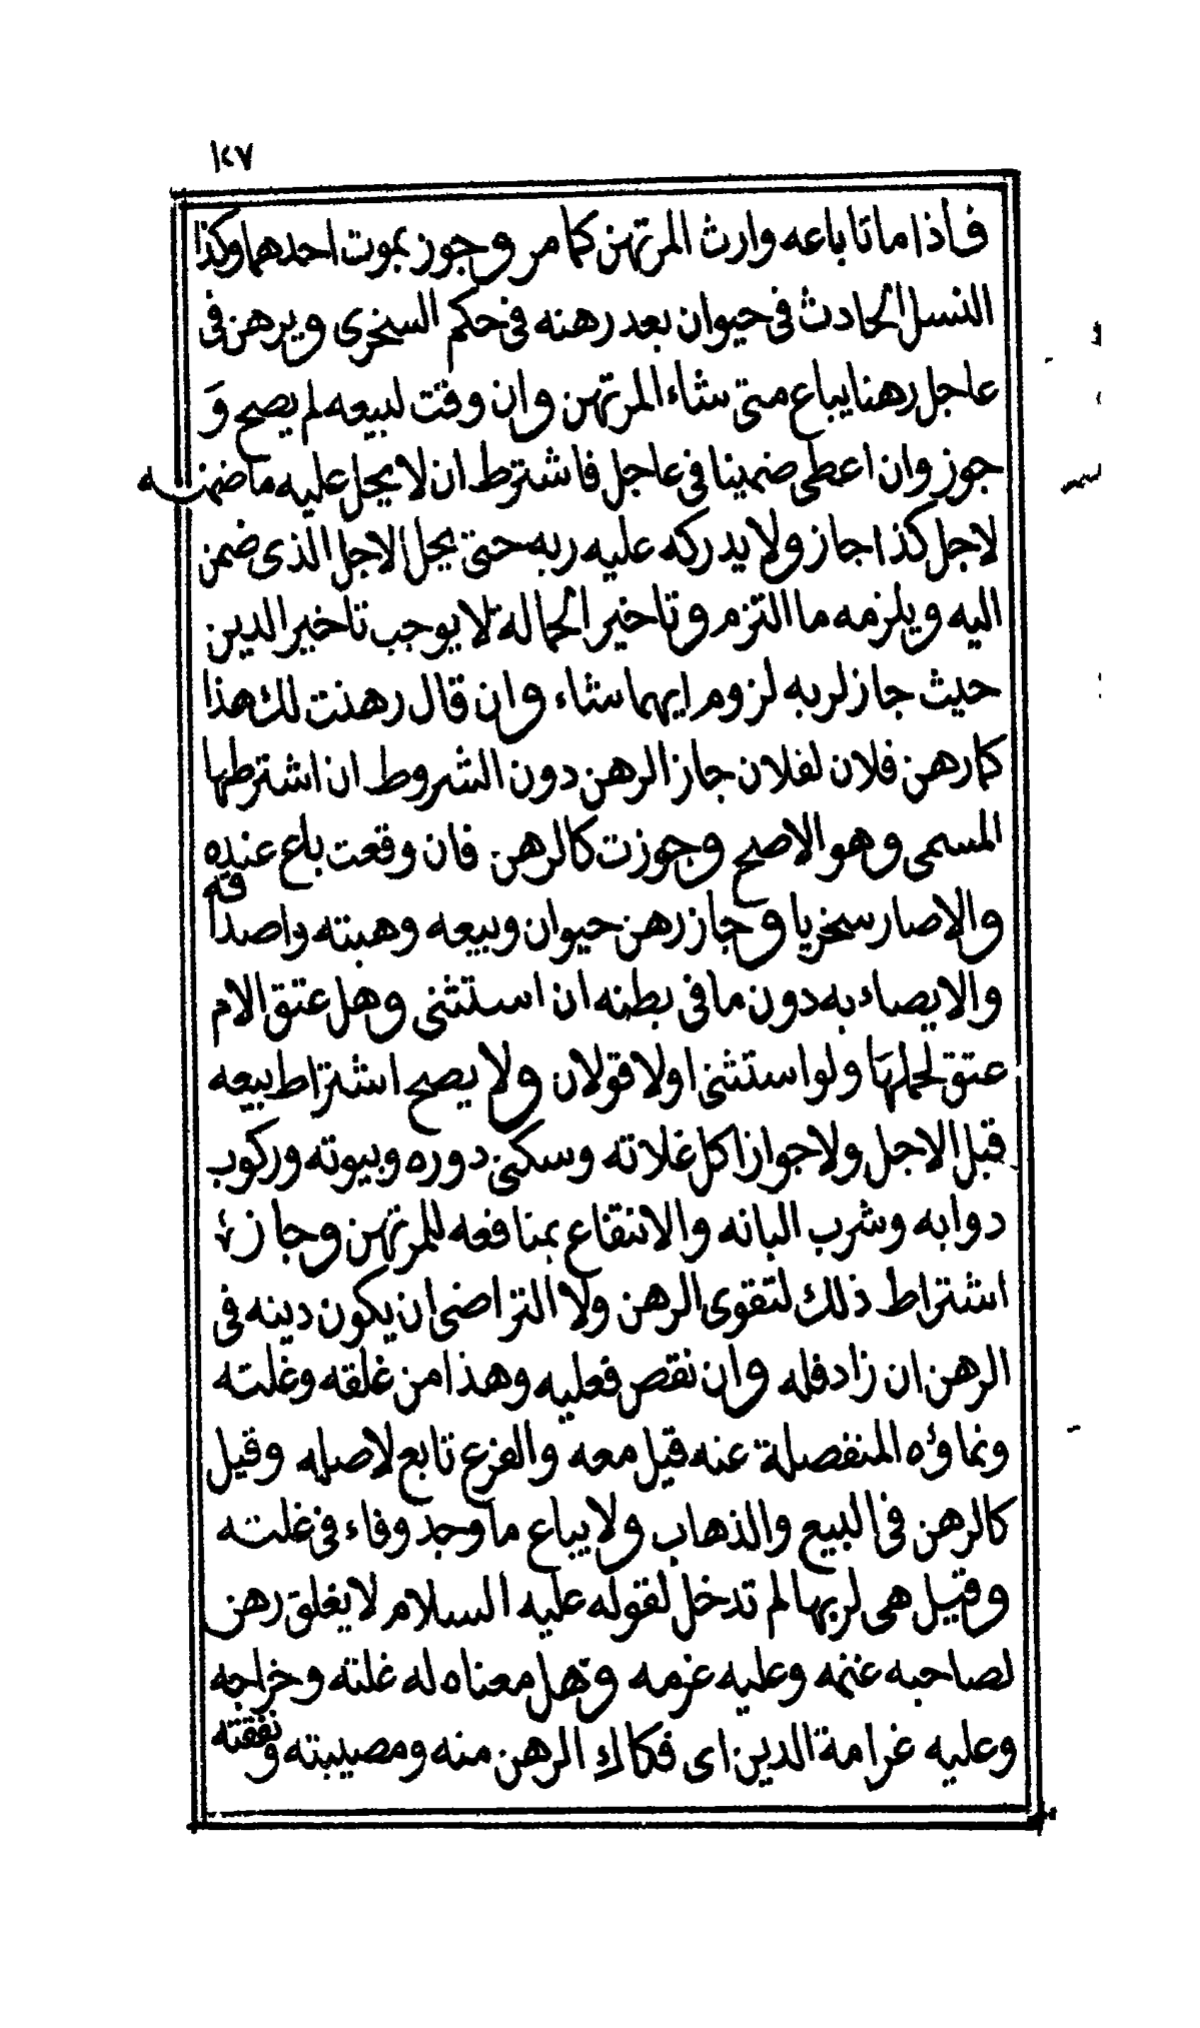 ١٤٧
فاذا ماتا باعه وارث المرتهن كما مر وجوز بموت احدهما وكذا
النسل الحادث في حيوان بعد رهنه في حكم السخري ويرهن في
عاجل رهنا يباع متى شاء المرتهن وان وقت لبيعه لم يصح و
جوز وان اعطى ضمينا في عاجل فاشترط ان لا يحل عليه ما ضمنه
لاجل كذا جاز ولا يدركه عليه ربه حتى يحل الاجل الذى ضمن
اليه ويلزمه ما التزم وتاخير الحمالة لا يوجب تاخير الدين
حيث جاز لربه لزوم ايهما شاء وان قال رهنت لك هذا
كما رهن فلان لفلان جاز الرهن دون الشروط ان اشترطها
المسمى وهو الاصح وجوزت كالرهن فان وقعت باع عنده
والا صار سخريا وجاز رهن حيوان وبيعه وهبته واصداقه
والايصاء به دون ما في بطنه ان استثنى وهل عتق الام
عتق لحملها ولو استثنى اولا قولان ولا يصح اشتراط بيعه
قبل الاجل ولا جواز اكل غلاته وسكنى دوره وبيوته وركوب
دوابه وشرب البانه والانتفاع بمنافعه للمرتهن وجاز
اشتراط ذلك لتقوى الرهن ولا التراضى ان يكون دينه في
الرهن ان زاد فله وان نقص فعليه وهذا من غلقه وغلته
ونماؤه المنفصلة عنه قيل معه والفرع تابع لاصله وقيل
كالرهن في البيع والذهاب ولا يباع ما وجد وفاء في غلته
وقيل هي لربها لم تدخل لقوله عليه السلام لا يغلق رهن
لصاحبه غنمه وعليه غرمه وهل معناه له غلته وخراجه
وعليه غرامة الدين اى فكاك الرهن منه ومصيبته ونفقته